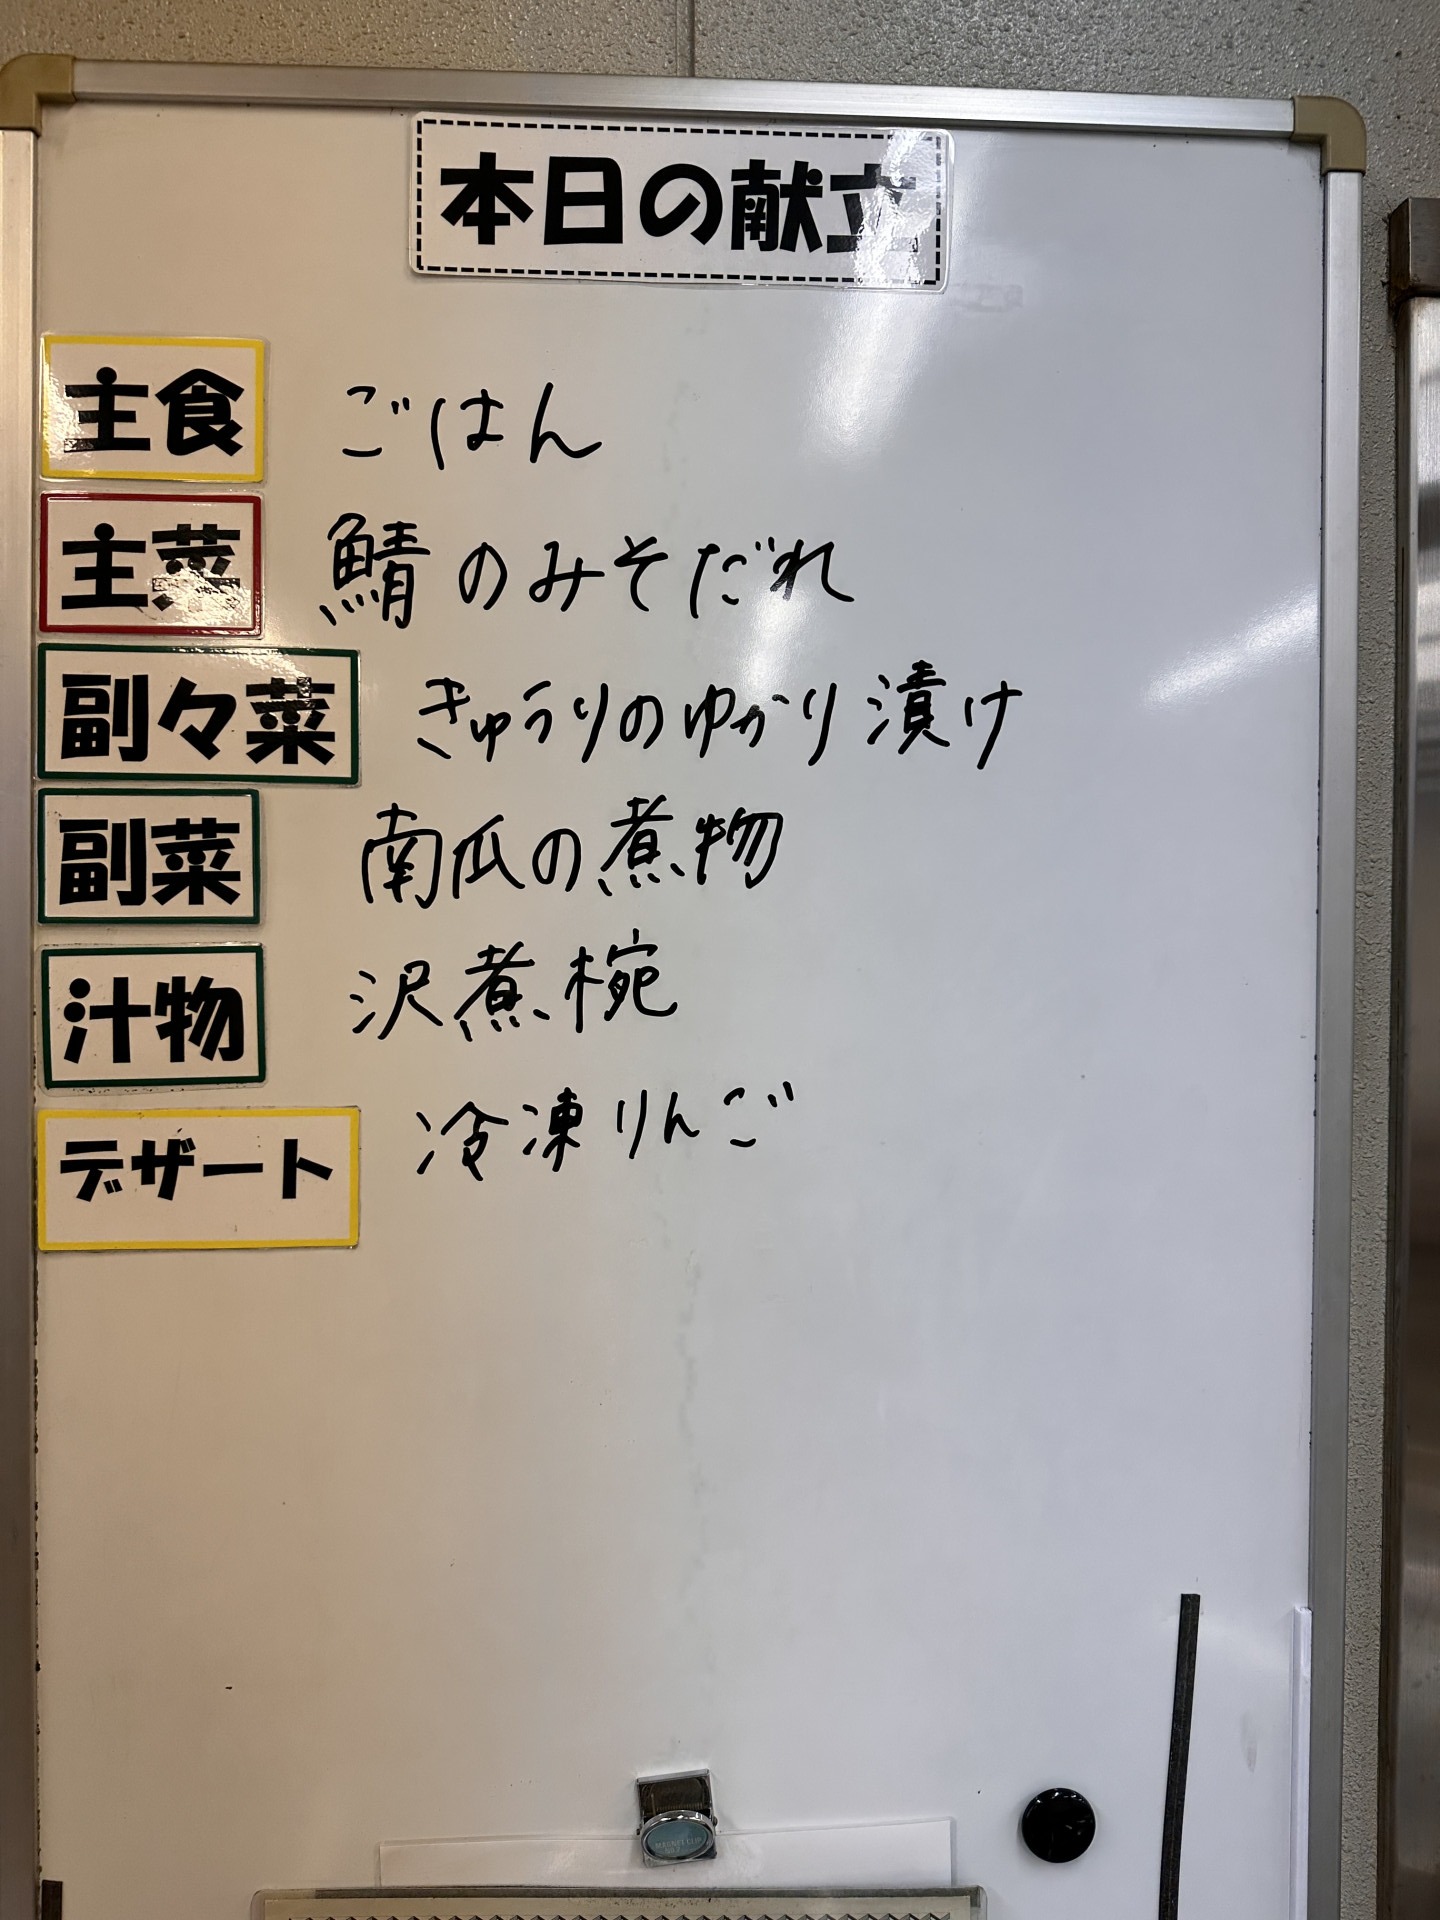 本日の献立
主食 ごはん
主菜 鯖のみそだれ
副々菜 きゅうりのゆかり漬け
副菜 南瓜の煮物
汁物 沢煮椀
デザート 冷凍りんご
MAGNET CLIP